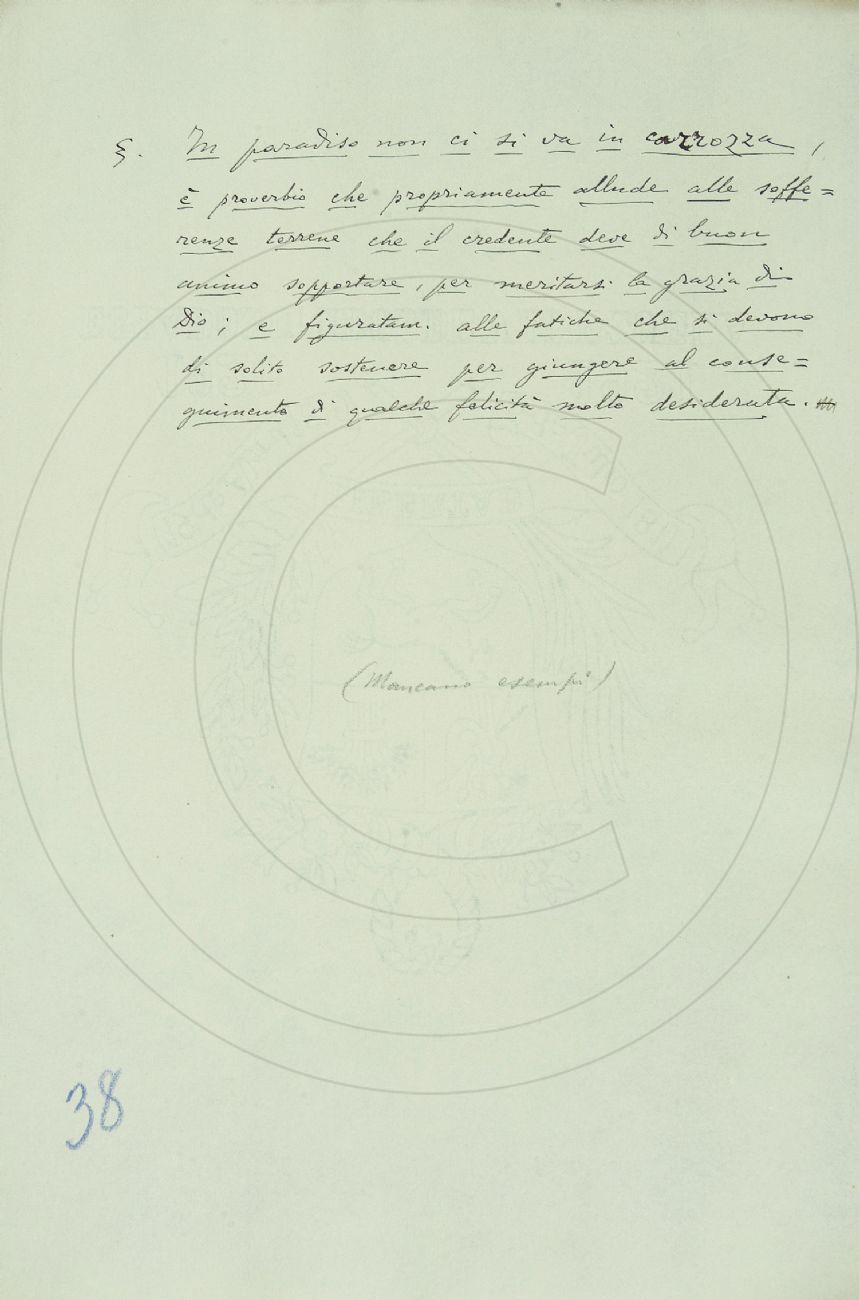 §. In paradiso non ci si va in carrozza,
è proverbio che propriamente allude alle soffe=
renze terrene che il credente deve di buon
animo sopportare, per meritarsi la grazia di
Dio; e figuratam. alle fatiche che si devono
di solito sostenere per giungere al conse=
guimento di qualche felicità molto desiderata.
(Mancano esempi)
38